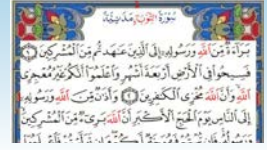 سورة التوبة مدنية
بَرَآءَةٌ مِّنَ ٱللَّهِ وَرَسُولِهِۦٓ إِلَى ٱلَّذِينَ عَٰهَدتُّم مِّنَ ٱلْمُشْرِكِينَ ١
فَسِيحُوا۟ فِى ٱلْأَرْضِ أَرْبَعَةَ أَشْهُرٍ وَٱعْلَمُوٓا۟ أَنَّكُمْ غَيْرُ مُعْجِزِى
ٱللَّهِ وَأَنَّ ٱللَّهَ مُخْزِى ٱلْكَٰفِرِينَ ٢ وَأَذَٰنٌ مِّنَ ٱللَّهِ وَرَسُولِهِۦٓ
إِلَى ٱلنَّاسِ يَوْمَ ٱلْحَجِّ ٱلْأَكْبَرِ أَنَّ ٱللَّهَ بَرِىٓءٌ مِّنَ ٱلْمُشْرِكِينَ